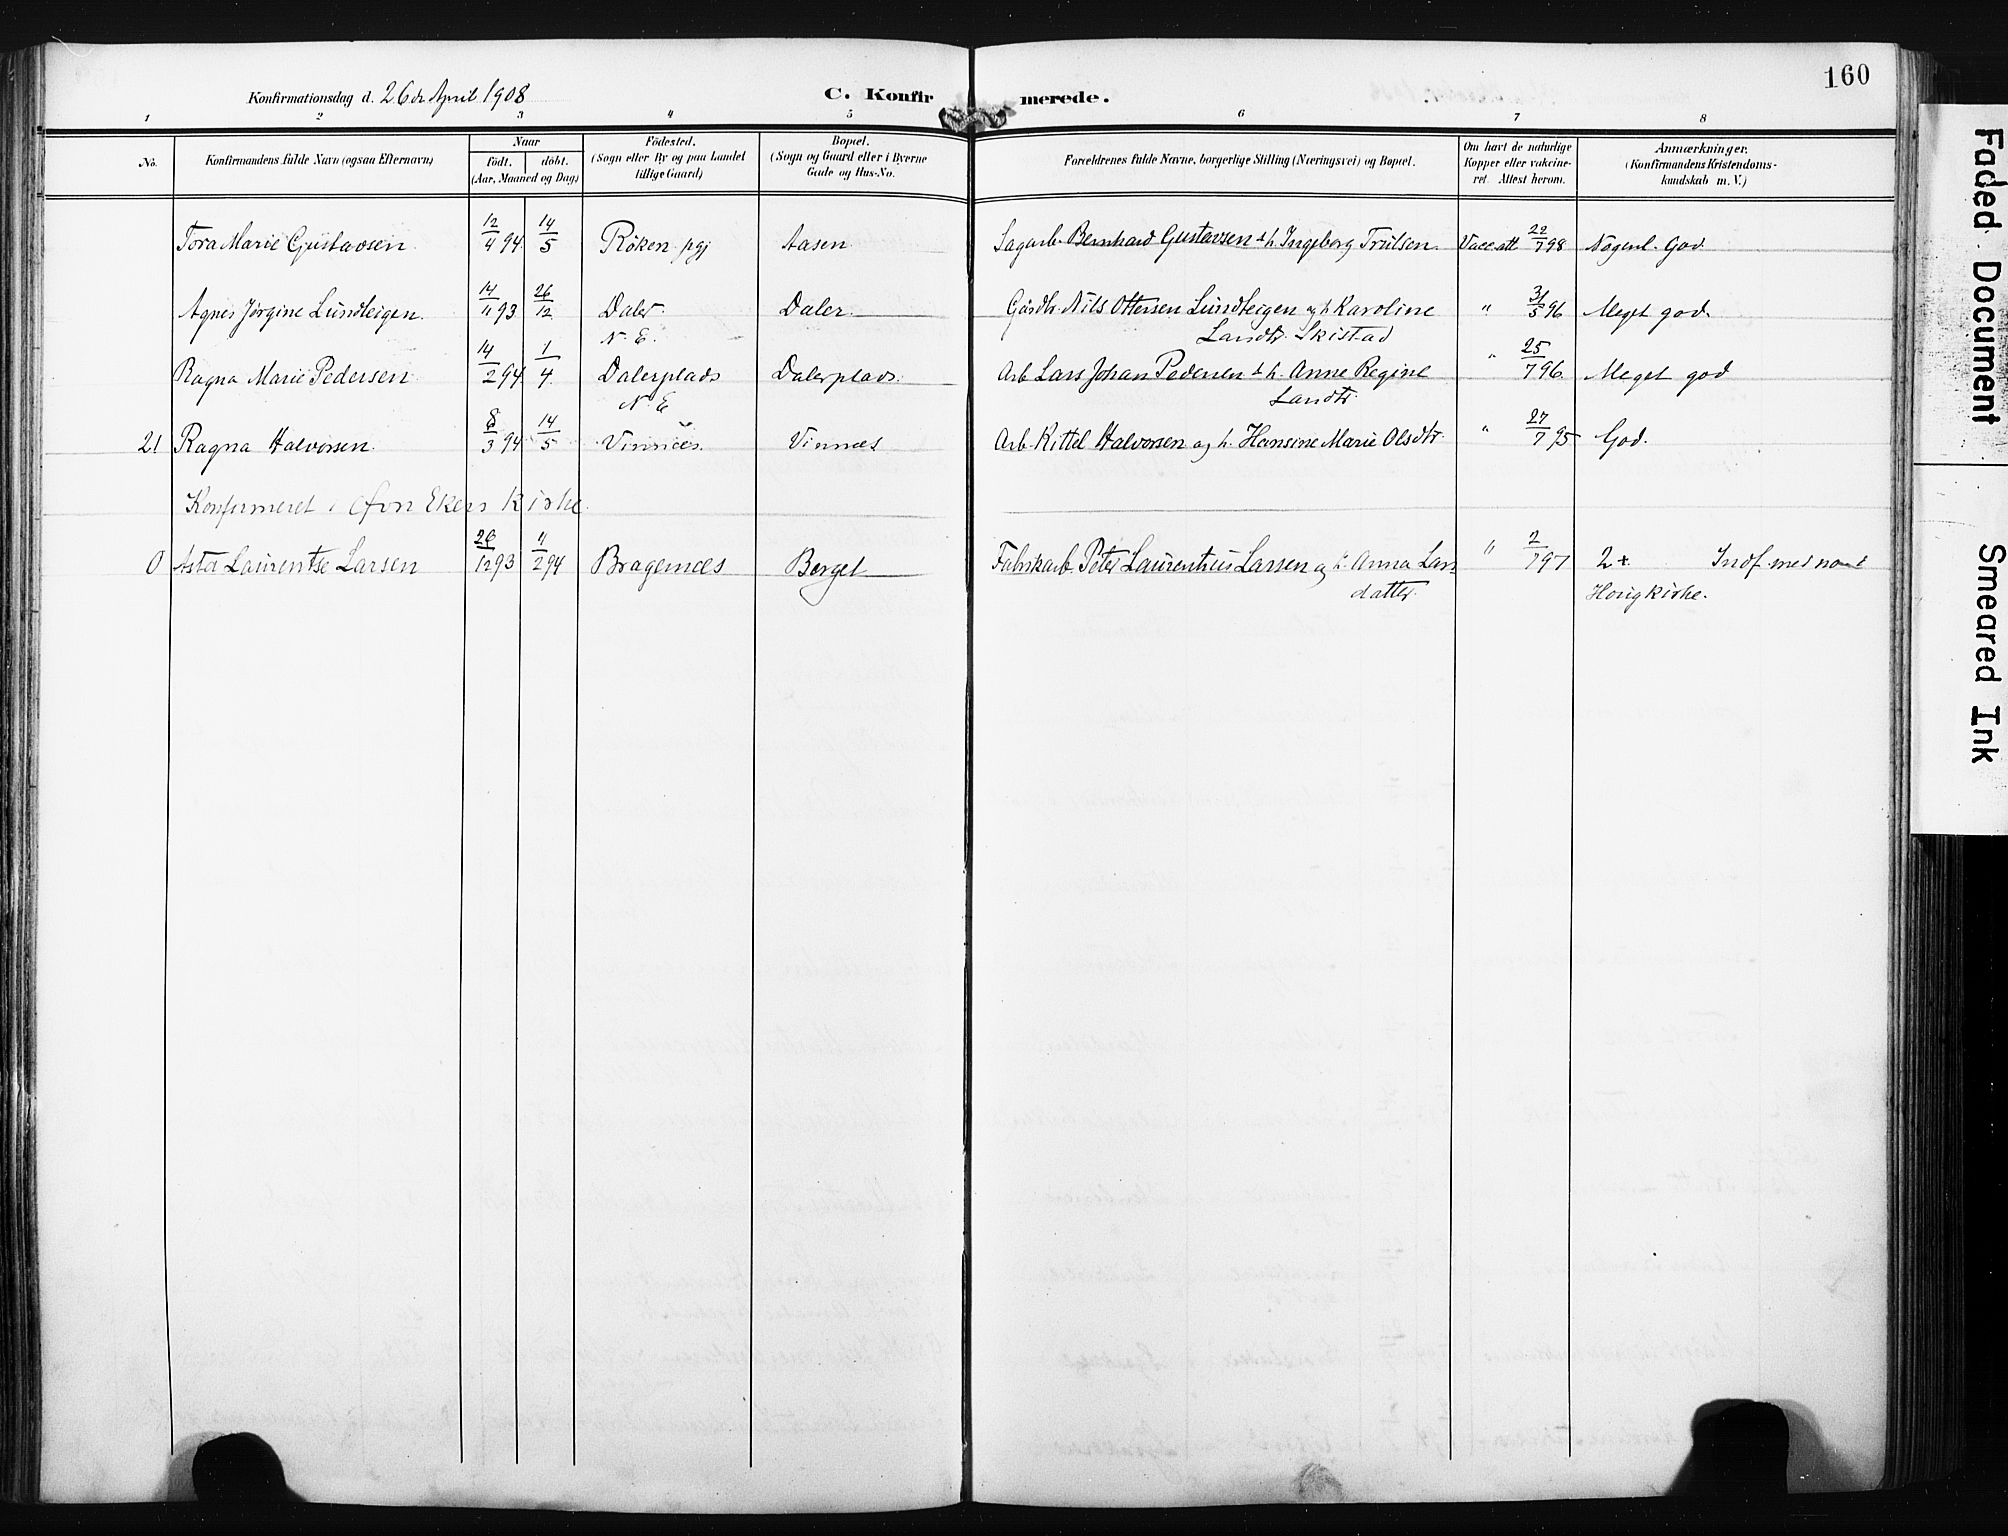 160
Konfirmationsdag d. 26de April 1908
C. Konfirmerede.
1 2 3 4 5 6 7 8
No.
Konfirmandens fulde Navn (ogsaa Efternavn)
Naar
født. døbt.
(Aar, Maaned og Dag)
Fødested.
(Sogn eller By og paa Landet
tillige Gaard)
Bopæl.
(Sogn og Gaard eller i Byerne
Gade og Hus-No.
Forældrenes fulde Navne, borgerlige Stilling (Næringsvei) og Bopæl.
Om havt de naturlige
Kopper eller vakcine-
ret. Attest herom.
Anmærkninger.
(Konfirmandens Kristendoms-
kundskab m. V.)
Tora Marie Gustavsen 12/4 94 14/5 Röken pgj Aasen Sagarb. Bernhard Gustavsen & h. Ingeborg Trulsen Vacc. att 22/7 98 Nogenl. God
Agnes Jørgine Lundteigen. 14/11 93 26/12 Daler Daler Gårdbr. Nils Ottersen Lundteigen og h. Karoline " 31/5 96 Meget god.
N. E. Landtr. Skistad
Ragna Marie Pedersen 14/2 94 1/4 Dalerplads Dalerplads. Arb. Lars Johan Pedersen & h. Anne Regine " 25/7 96 Meget god
N. E Larsdtr.
21 Ragna Halvorsen. 8/3 94 14/5 Vinnæs. Vinnæs Arb. Kittel Halvorsen og h. Hansine Marie Olsdtr. " 27/7 95 God.
Konfirmeret i Øvn Ekers Kirke
0 Asta Laurentse Larsen 26/12 93 11/2 94 Bragernæs Berget Fabrikarb. Peter Laurentius Larsen og h. Anna Lars " 2/7 97 2+ Indf. med no
datter. Hougkirke.
Faded Document
Smeared Ink